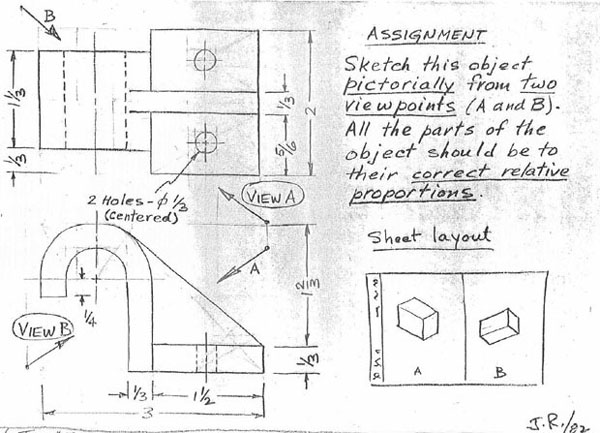 B
1 1/3
1/3
1/3
5/6
2
2 Holes - ϕ 1/3
(centered)
VIEW A
A
1/4
VIEW B
1 2/3
1/3
1/3
1 1/2
3
ASSIGNMENT
Sketch this object
pictorially from two
viewpoints (A and B).
All the parts of the
object should be to
their correct relative
proportions.
Sheet layout
A
B
J.R./82